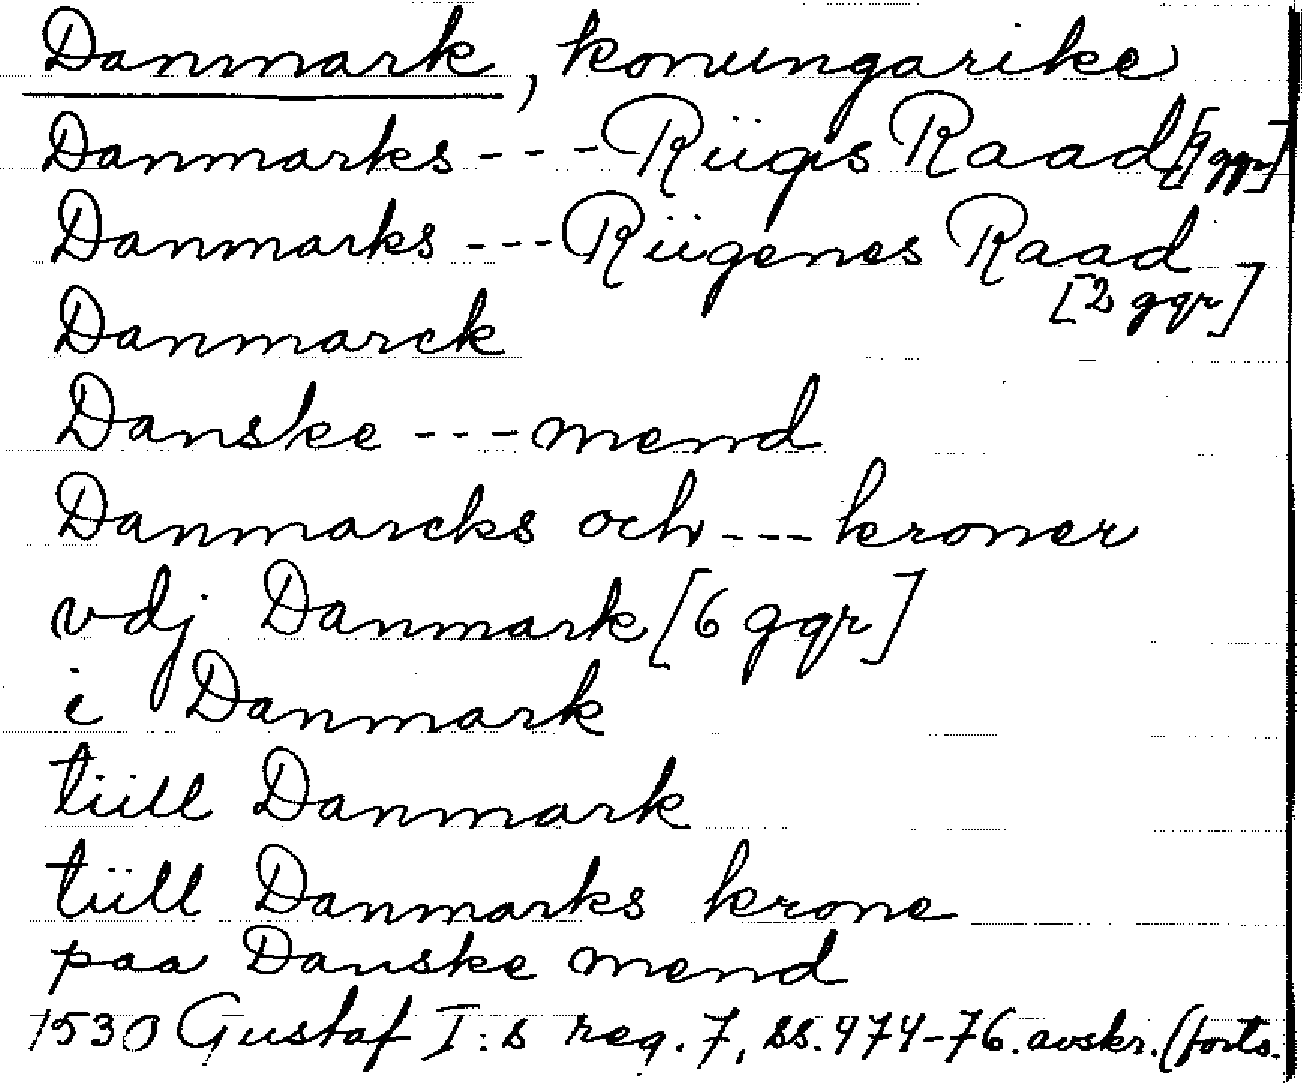 Danmark, konungarike
Danmarks --- Riigis Raad [9 ggr]
Danmarks --- Riigenes Raad
[2 ggr]
Danmarck
Danske --- mend
Danmarcks och --- kroner
vdj Danmark [6 ggr]
i Danmark
tiill Danmark
tiill Danmarks krone
paa Danske mend
1530 Gustaf I:s reg. 7, ss. 474-76. avskr. (forts.